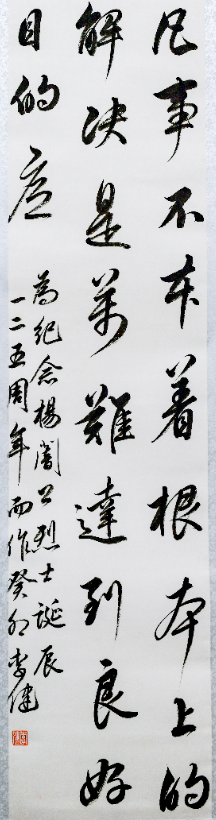 凡事不本着根本上的
解决是萬難達到良好
目的底
為紀念楊闇公烈士誕辰
一二五周年而作癸卯李健